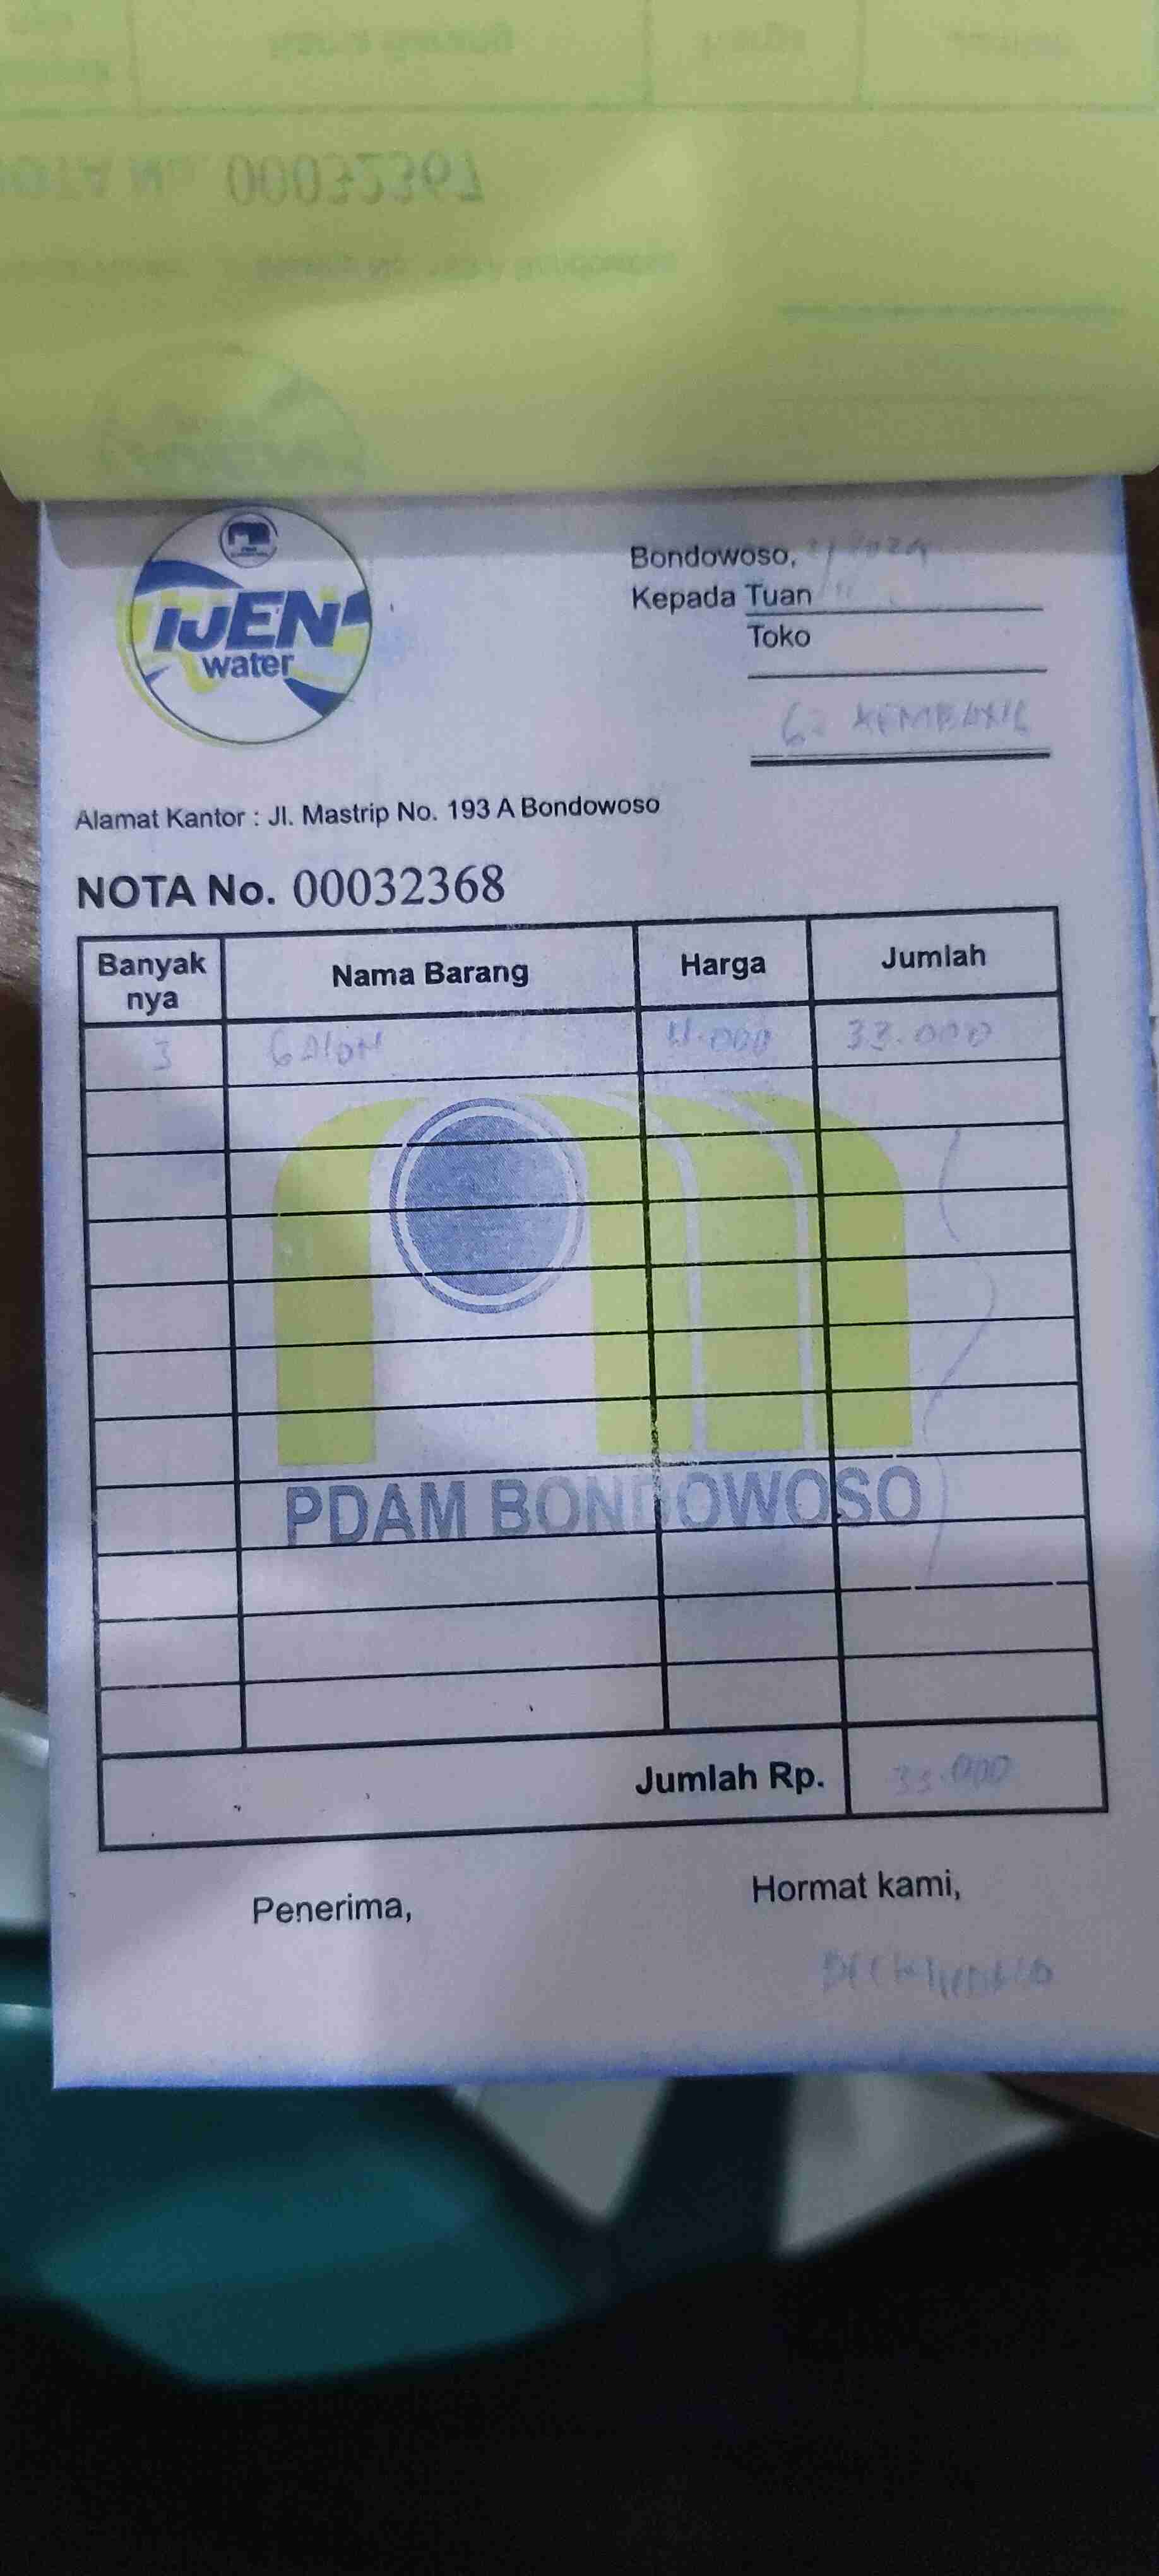 NOTA No. 00032367
IJEN
water
Bondowoso, 2024
Kepada Tuan
Toko
Alamat Kantor : Jl. Mastrip No. 193 A Bondowoso
NOTA No. 00032368
Banyak nya Nama Barang Harga Jumlah
3 GALON 11.000 33.000
PDAM BONDOWOSO
Jumlah Rp. 33.000
Penerima, Hormat kami,